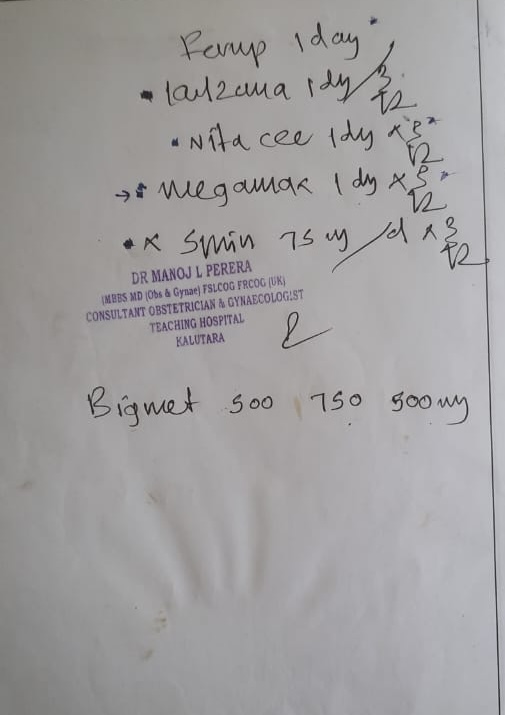 Ferup 1 day
1 dy 3/12
Vita cee 1 dy x 3/12
→ megamax 1 dy x 3/12
x 5min 75 mg /d x 3/12
DR MANOJ L PERERA
(MBBS MD (Obs & Gynae) FSLCOG FRCOG (UK)
CONSULTANT OBSTETRICIAN & GYNAECOLOGIST
TEACHING HOSPITAL
KALUTARA
Bigmet 500 750 500mg